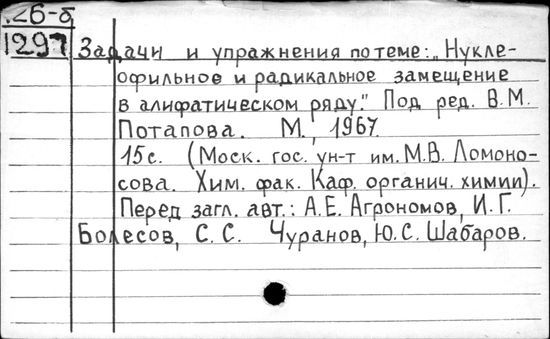 .26-б
1297
Задачи и упражнения по теме: „Нукле-
офильное и радикальное замещение
в алифатическом ряду." Под ред. В.М.
Потапова. М., 1967.
15 с. (Моск. гос. ун-т им. М.В. Ломоно-
сова. Хим. фак. Каф. органич. химии).
Перед загл. авт.: А.Е. Агрономов, И.Г.
Болесов, С.С. Чуранов, Ю.С. Шабаров.